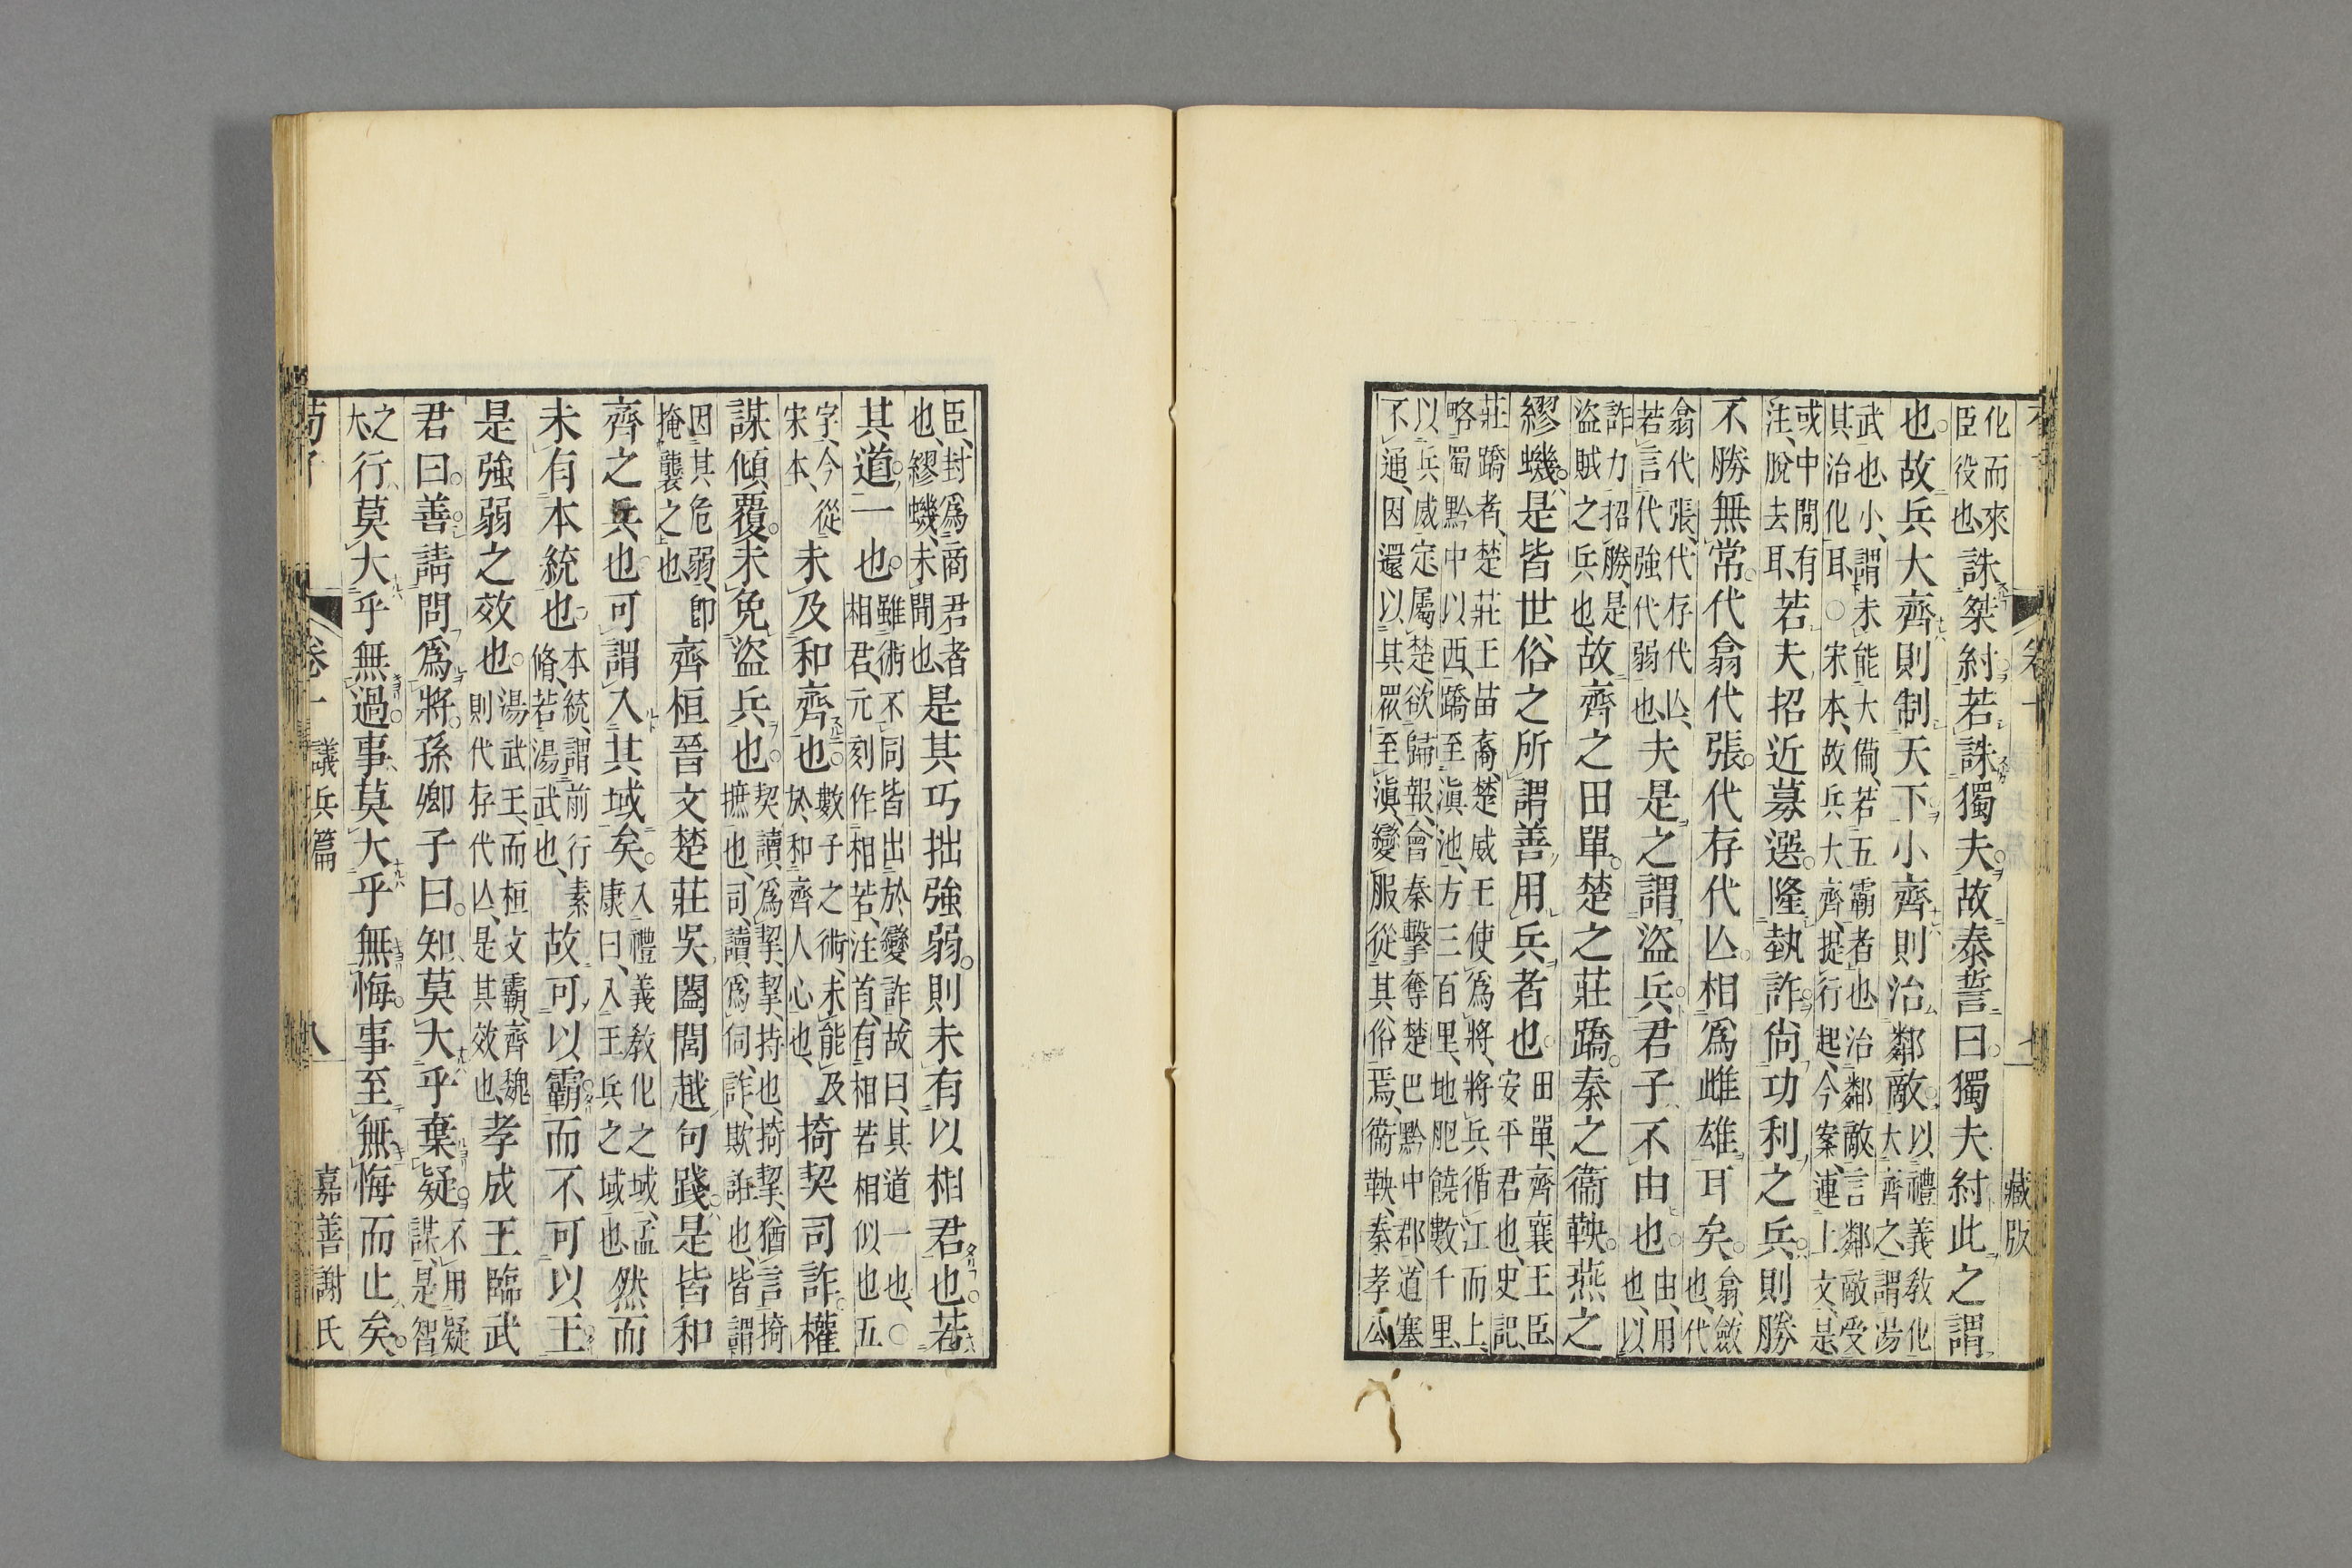 藏版
化而來臣役也、誅桀紂若誅獨夫。故泰誓曰。獨夫紂此之謂
也。故兵大齊則制天下小齊則治鄰敵。以禮義教化大齊之、謂湯
武也、小、謂未能大備、若五霸者也、治鄰敵、言鄰敵受
其治化耳、〇宋本、故兵大齊、提行起、今案、連上文是、
或中閒有注、脫去耳、若夫招近募選。隆埶詐。尙功利之兵。則勝
不勝無常。代翕代張。代存代亾。相爲雌雄耳矣。翕、斂也、代
翕代張、代存代亾、若言代強代弱也、夫是之謂盜兵。君子不由也。由、用也、以
詐力招勝、是盜賊之兵也、故齊之田單。楚之莊蹻。秦之衞鞅。燕之
繆蟣。是皆世俗之所謂善用兵者也。田單、齊襄王臣安平君也、史記、
莊蹻者、楚莊王苗裔、楚威王使爲將、將兵循江而上、
略蜀黔中以西、蹻至滇池、方三百里、地肥饒數千里、
以兵威定屬楚、欲歸報、會秦擊奪楚巴黔中郡、道塞
不通、因還以其眾至滇、變服從其俗焉、衞鞅、秦孝公
臣、封爲商君者也、繆蟣、未聞也、是其巧拙強弱。則未有以相君也。若
其道一也。雖術不同皆出於變詐、故曰、其道一也、〇相君、元刻作相若、注首、有相若相似也五
字、今從宋本、未及和齊也。數子之術、未能及於和齊人心也、掎契司詐。權
謀傾覆。未免盜兵也。契讀、爲挈、挈、持也、掎挈、猶言掎摭也、司、讀爲伺、詐、欺誑也、皆謂
因其危弱、卽掩襲之也、齊桓晉文楚莊吳闔閭越句踐。是皆和
齊之兵也可謂入其域矣。入禮義敎化之域、孟康曰、入王兵之域也、然而
未有本統也。本統、謂前行素脩、若湯武也、故可以霸而不可以王
是強弱之效也。湯武王、而桓文霸、齊魏則代存代亾、是其效也、孝成王臨武
君曰。善。請問爲將。孫卿子曰。知莫大乎棄疑。不用疑謀、是智
之大、行莫大乎無過。事莫大乎無悔。事至無悔而止矣。
議兵篇 八 嘉善謝氏